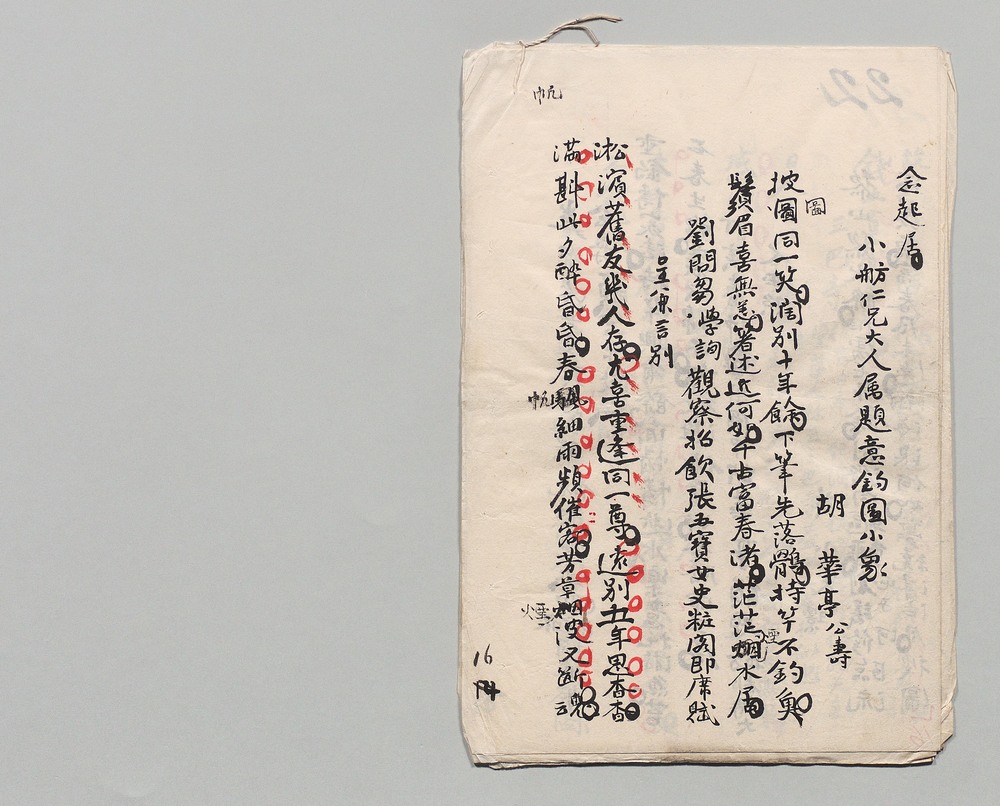 念起居
小舫仁兄大人属題意釣圖小象
胡
華亭公壽
圖
披圖同一笑濶別十年餘下筆先落鶻持竿不釣奥
鬚眉喜無恙箸述近何如千古富春渚茫茫烟水居
煙
劉問芻學詢觀察招飲張五寶女史粧閣即席賦
呈兼言別
淞濱舊友幾人存尤喜重逢同一尊遠別五年思杳杳
滿斟此夕醉昏昏春颿細雨頻催客芳草烟波又斷魂
帆
帆
煙
16
22